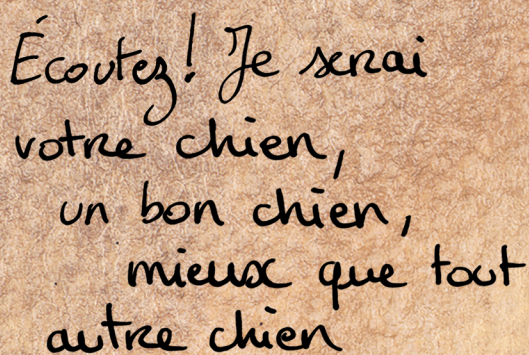 Écoutez! Je serai
votre chien,
un bon chien,
mieux que tout
autre chien